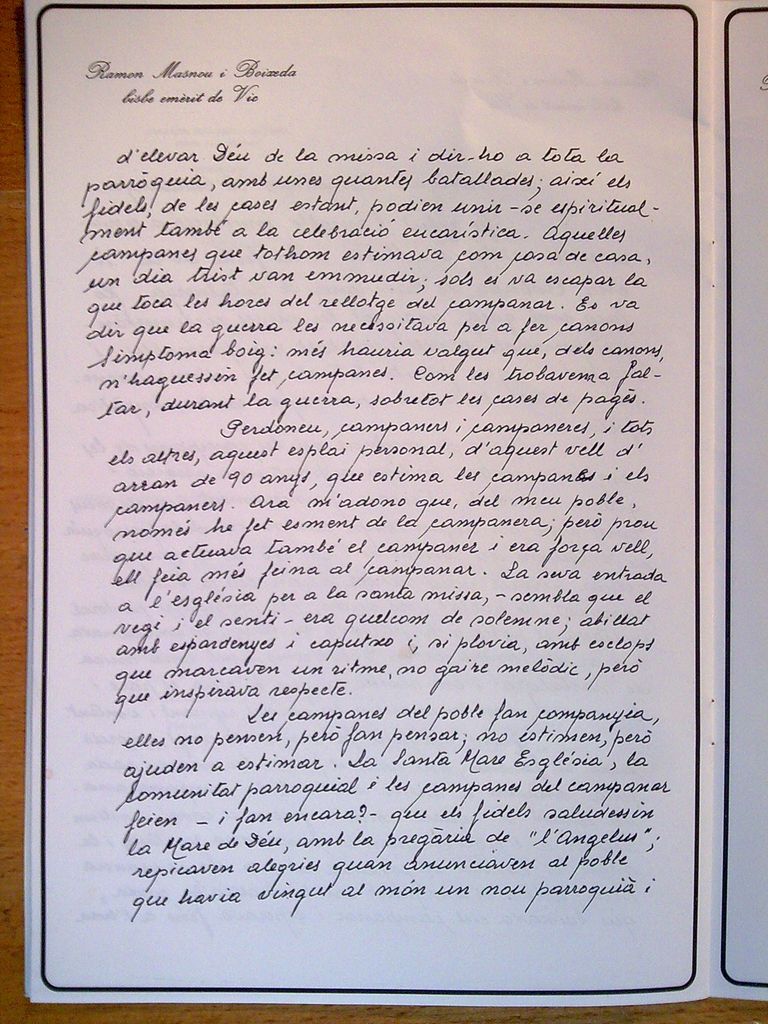 Ramon Masnou i Boixeda
bisbe emèrit de Vic
d'elevar Déu de la missa i dir-ho a tota la
parròquia, amb unes quantes batallades; així els
fidels, de les cases estant, podien unir-se espiritual-
ment també a la celebració eucarística. Aquelles
campanes que tothom estimava com cosa de casa,
un dia trist van emmudir; sols es va escapar la
que toca les hores del rellotge del campanar. Es va
dir que la guerra les necessitava per a fer canons
Símptoma boig: més hauria valgut que, dels canons,
n'haguessin fet campanes. Com les trobavem a fal-
tar, durant la guerra, sobretot les cases de pagès.
Perdoneu, campaners i campaneres, i tots
els altres, aquest esplai personal, d'aquest vell d'
arran de 90 anys, que estima les campanes i els
campaners. Ara m'adono que, del meu poble,
només he fet esment de la campanera; però prou
que actuava també el campaner i era força vell,
ell feia més feina al campanar. La seva entrada
a l'església per a la santa missa, - sembla que el
vegi i el senti - era quelcom de solemne; abillat
amb espardenyes i caputxo i, si plovia, amb esclops
que marcaven un ritme, no gaire melòdic, però
que inspirava respecte.
Les campanes del poble fan companyia,
elles no pensen, però fan pensar; no estimen, però
ajuden a estimar. La Santa Mare Església, la
comunitat parroquial i les campanes del campanar
feien - i fan encara? - que els fidels saludessin
la Mare de Déu, amb la pregària de "l'Angelus";
repicaven alegries quan anunciaven al poble
que havia vingut al món un nou parroquià i